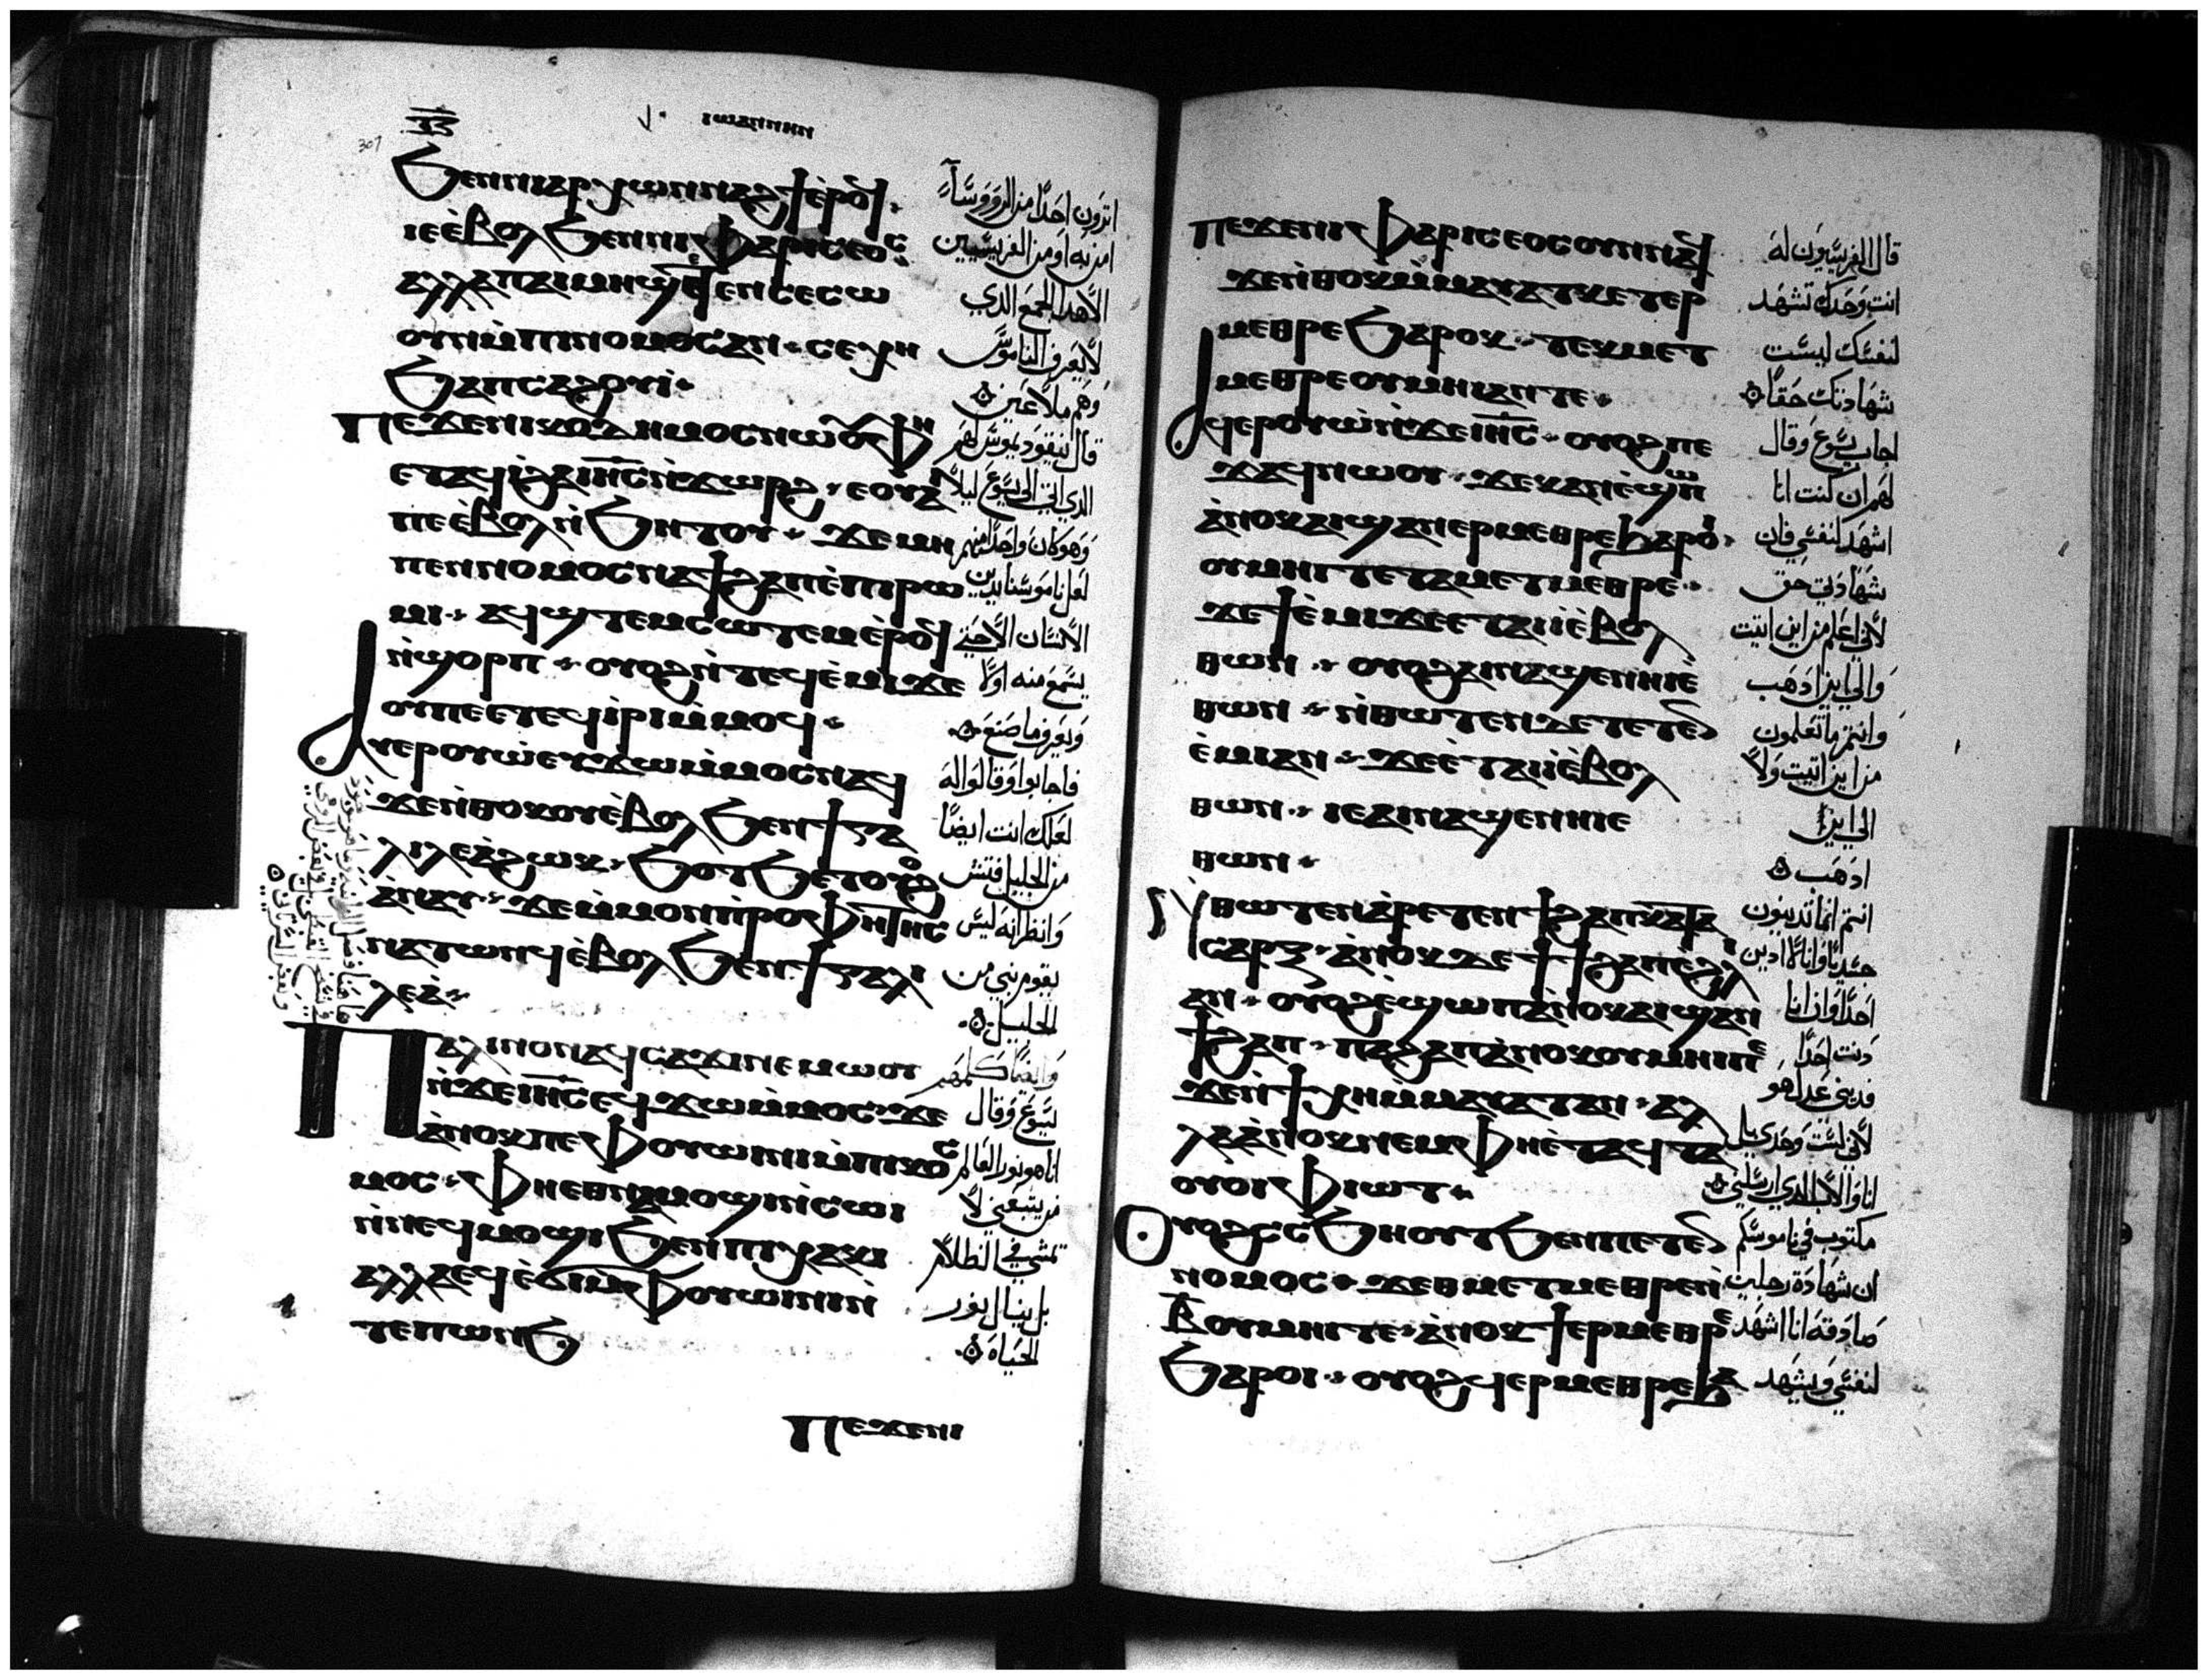 ⲓⲱⲁⲛⲛⲏⲛ
307
ϧⲉⲛⲛⲓⲁⲣⲭⲱⲛⲛⲁϩϯⲉ̀ⲣⲟϥ
ⲓⲉⲉ̀ⲃⲟⲗϧⲉⲛⲛⲓⲫⲁⲣⲓⲥⲉⲟⲥ
ⲁⲗⲗⲁⲡⲁⲓⲙⲏϣⲉⲧⲉⲛⲥⲉⲥⲱ
ⲟⲩⲛⲙ̀ⲡⲓⲛⲟⲙⲟⲥⲁⲛ ⲥⲉⲭⲏ
ϧⲁⲡⲥⲁϩⲟⲩⲓ̀
ⲡⲉϫⲉⲛⲓⲕⲟⲇⲏⲙⲟⲥⲛⲱⲟⲩⲫⲏ
ⲉⲧⲁϥⲓ̀ϩⲁⲓⲏ̅ⲥ̅ⲛ̀ϫⲱⲣϩ ⲉⲟⲩⲁ
ⲡⲉⲉ̀ⲃⲟⲗⲛ̀ϧⲏⲧⲟⲩ ϫⲉⲙⲏ
ⲡⲉⲛⲛⲟⲙⲟⲥⲛⲁϯϩⲁⲡⲉ̀ⲡⲓⲣⲱ
ⲙⲓ ⲁϥϣⲧⲉⲙⲥⲱⲧⲉⲙⲉ̀ⲣⲟϥ
ⲛ̀ϣⲟⲣⲡ ⲟⲩⲟϩⲛ̀ⲧⲉϥⲉ̀ⲙⲓϫⲉ
ⲟⲩⲡⲉⲉⲧⲉϥⲓ̀ⲣⲓⲙ̀ⲙⲟϥ
ⲁⲩⲉⲣⲟⲩⲱ̀ⲉⲩϫⲱⲙ̀ⲙⲟⲥⲛⲁϥ
ϫⲉⲛ̀ⲑⲟⲕⲟⲩⲉ̀ⲃⲟⲗϧⲉⲛϯⲅⲁ
ⲗⲓⲗⲉⲁ̀ϩⲱⲕ ϧⲟⲧϧⲉⲧⲟⲩⲟϩ
ⲁ̀ⲛⲁⲩ ϫⲉⲙ̀ⲙⲟⲛⲡ̀ⲣⲟⲫⲏⲧⲏⲥ
ⲛⲁⲧⲱⲛϥⲉ̀ⲃⲟⲗϧⲉⲛϯⲅⲁⲗⲓ
ⲗⲉⲁ̀
ⲡⲁⲗⲓⲛⲟⲛⲁϥⲥⲁϫⲓⲛⲉⲙⲱⲟⲩ
ⲛ̀ϫⲉⲓⲏ̅ⲥ̅ⲉϥϫⲱⲙ̀ⲙⲟⲥ ϫⲉ
ⲁ̀ⲛⲟⲕⲡⲉⲫⲟⲩⲱⲓⲛⲓⲙ̀ⲡⲓⲕⲟⲥ
ⲙⲟⲥ ⲫⲏⲉⲑⲛⲁⲙⲟϣⲓⲛ̀ⲥⲱⲓ
ⲛ̀ⲛⲉϥⲙⲟϣⲓϧⲉⲛⲡⲓⲭⲁⲕⲓ
ⲁⲗⲗⲁⲉϥⲉ̀ϭⲓⲙ̀ⲫⲟⲩⲱⲓⲛⲓⲛ̀
ⲧⲉⲡⲱⲛϧ
ⲡⲉϫⲉⲛⲓ
اترون احدًا من الروسآء
امن به او من الفريسيين
الا هدا الجمع الدي
لا يعرف الناموس
وهم ملاعين
قال نيقوديموس لهم
الدي اتي الي يسوع ليلا
وهو كان واحدا منهم
لعل ناموسنا يدين
الانسان الا حتي
يسمع منه اولا
ويعرف ما صنع
فاجابوا وقالوا له
لعلك انت ايضًا
من الجليل فتش
وانظر انه ليس
يقوم نبي من
الجليل
وايضًا كلمهم
يسوع وقال
انا هو نور العالم
من يتبعني لا
يمشي في الظلام
بل ينال نور
الحياة
ⲡⲉϫⲉⲛⲓⲫⲁⲣⲓⲥⲉⲟⲥⲟⲩⲛⲛⲁϥ
ϫⲉⲛ̀ⲑⲟⲕⲙ̀ⲙⲁⲩⲁⲧⲕⲉⲧⲉⲣ
ⲙⲉⲑⲣⲉϧⲁⲣⲟⲕ ⲧⲉⲕⲙⲉⲧ
ⲙⲉⲑⲣⲉⲟⲩⲙⲏⲓⲁⲛⲧⲉ
ⲁϥⲉⲣⲟⲩⲱ̀ⲛ̀ϫⲉⲓⲏ̅ⲥ̅ ⲟⲩⲟϩⲡⲉ
ϫⲁϥⲛⲱⲟⲩ ϫⲉⲕⲁⲛⲉ̀ϣⲱⲡ
ⲁ̀ⲛⲟⲕⲁⲓϣⲁⲛⲉⲣⲙⲉⲑⲣⲉϧⲁⲣⲟⲓ
ⲟⲩⲙⲏⲓⲧⲉⲧⲁⲙⲉⲧⲙⲉⲑⲣⲉ
ϫⲉϯⲉ̀ⲙⲓϫⲉⲉⲧⲁⲓⲓ̀ⲉ̀ⲃⲟⲗ
ⲑⲱⲛ ⲟⲩⲟϩⲁⲓⲛⲁϣⲉⲛⲏⲓⲉ̀
ⲑⲱⲛ ⲛ̀ⲑⲱⲧⲉⲛⲇⲉⲧⲉⲧⲉⲛ
ⲉ̀ⲙⲓⲁⲛ ϫⲉⲉ̀ⲧⲁⲓⲓ̀ⲉ̀ⲃⲟⲗ
ⲑⲱⲛ ⲓⲉⲁⲓⲛⲁϣⲉⲛⲏⲓⲉ
ⲑⲱⲛ
ⲛ̀ⲑⲱⲧⲉⲛⲁ̀ⲣⲉⲧⲉⲛϯϩⲁⲡⲕⲁⲧⲁ
ⲥⲁⲣⲝ ⲁ̀ⲛⲟⲕⲇⲉϯϯϩⲁⲡⲉ̀ϩⲗⲓ
ⲁⲛ ⲟⲩⲟϩⲉ̀ϣⲱⲡⲁ̀ⲛⲟⲕⲁⲓϣⲁⲛ
ϯϩⲁⲡ ⲡⲁϩⲁⲡⲁ̀ⲛⲟⲕⲟⲩⲙⲏⲓⲡⲉ
ϫⲉⲛ̀ϯⲭⲏⲙ̀ⲙⲁⲩⲁⲧⲁⲛ ⲁⲗ
ⲗⲁⲁ̀ⲛⲟⲕⲛⲉⲙⲫⲏⲉ̀ⲧⲁϥⲧⲁ
ⲟⲩⲟⲓⲫⲓⲱⲧ
ⲟⲩⲟϩⲥⲥϧⲏⲟⲩⲧϧⲉⲛⲡⲉⲧⲉⲛ
ⲛⲟⲙⲟⲥ ϫⲉⲑⲙⲉⲧⲙⲉⲑⲣⲉⲛ̀
ⲃ̅ⲟⲩⲙⲏⲓⲧⲉ ⲁ̀ⲛⲟⲕϯⲉⲣⲙⲉⲑⲣⲉ
ϧⲁⲣⲟⲓ ⲟⲩⲟϩϥⲉⲣⲙⲉⲑⲣⲉϧⲁ
قال الفريسيون له
انت وحدك تشهد
لنفسك ليست
شهادتك حقًا
اجاب يسوع وقال
لهم ان كنت انا
اشهد لنفسي فان
شهادتي حق
لاني اعلم من اين اتيت
والي اين ادهب
وانتم ما تعلمون
من اين اتيت ولا
الي اين
ادهب
انتم انما تدينون
جسديًا وانا لا ادين
احدًا وان انا
دنت احدًا
فديني عدل هو
لاني لست وحدي بل
انا والاب الدي ارسلني
مكتوب في ناموسكم
ان شهادة رجلين
صادقة انا اشهد
لنفسي ويشهد